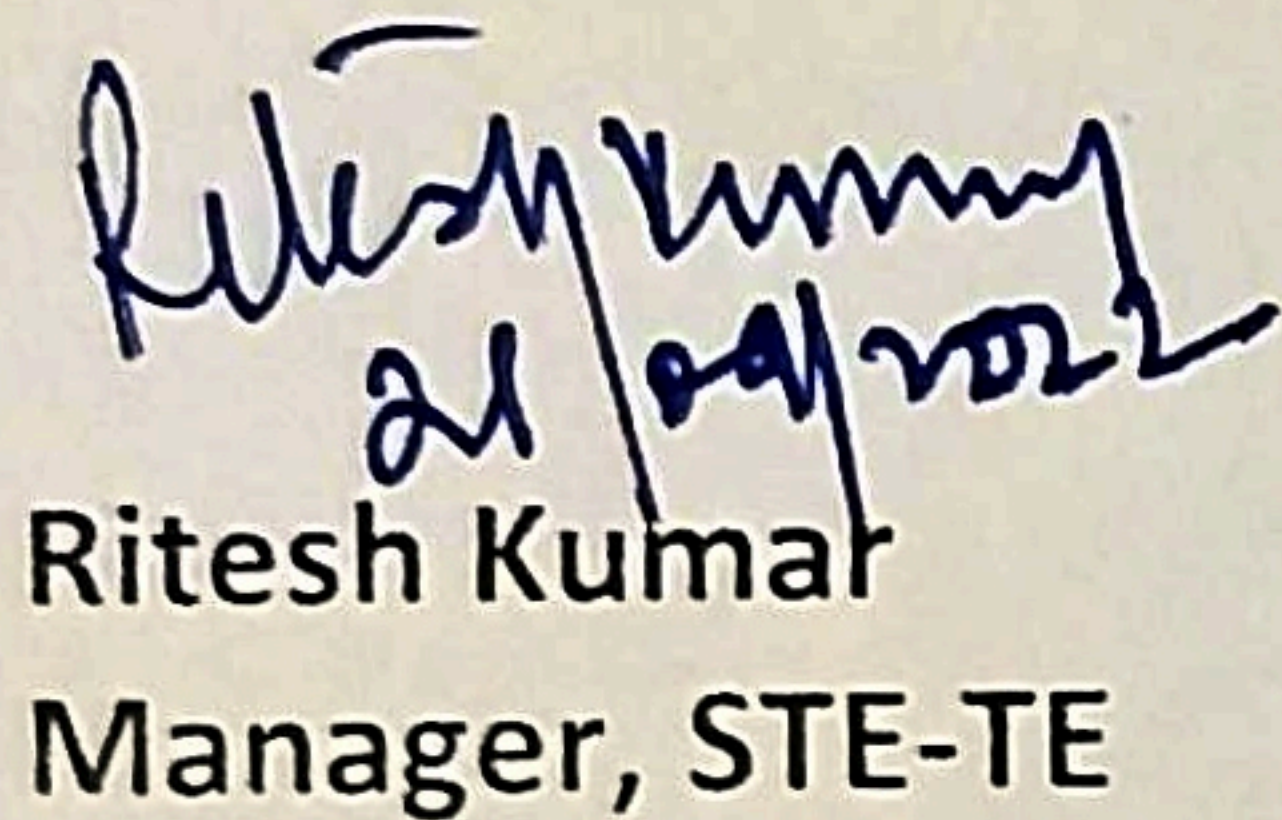 Ritesh Kumar
21/09/2022
Ritesh Kumar
Manager, STE-TE